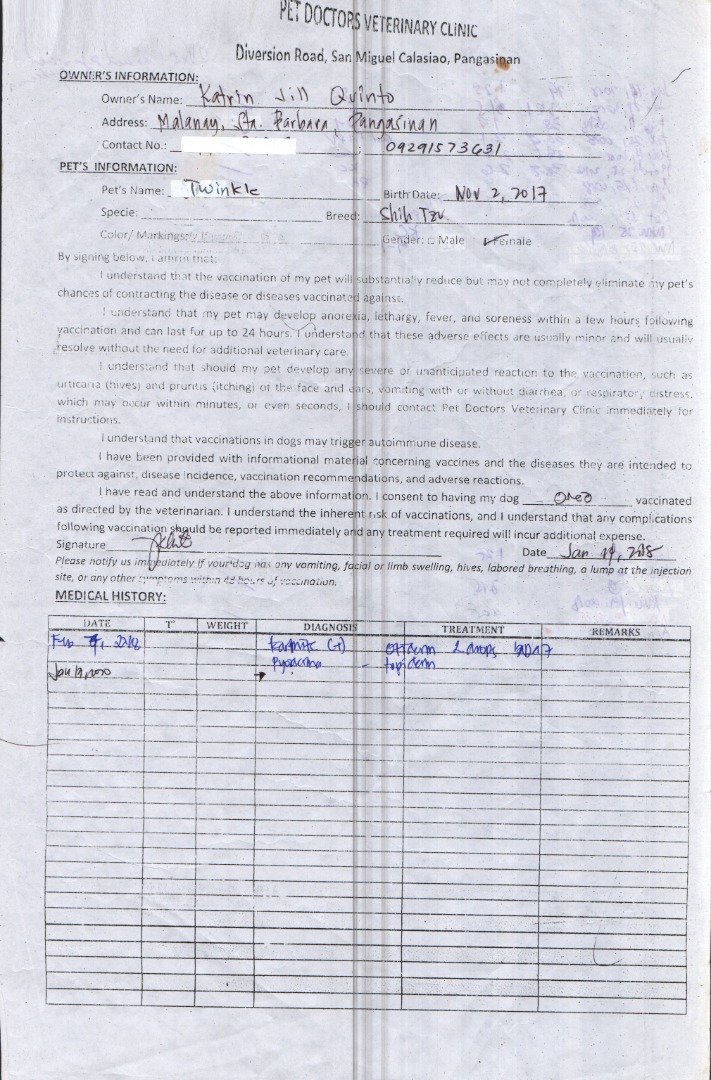 PET DOCTORS VETERINARY CLINIC
Diversion Road, San Miguel Calasiao, Pangasinan
OWNER'S INFORMATION:
Owner's Name: Katrin Jill Quinto
Address: Malanay, Sta. Barbara, Pangasinan
Contact No.: : 09291573631
PET'S INFORMATION:
Pet's Name: Twinkle Birth Date: Nov 2, 2017
Specie: Breed: Shih Tzu
Color/ Markings Gender: □ Male Female
By signing below, I affirm that:
I understand that the vaccination of my pet will substantially reduce but may not completely eliminate my pet's
chances of contracting the disease or diseases vaccinated against.
I understand that my pet may develop anorexia, lethargy, fever, and soreness within a few hours following
vaccination and can last for up to 24 hours. I understand that these adverse effects are usually minor and will usually
resolve without the need for additional veterinary care.
I understand that should my pet develop any severe or unanticipated reaction to the vaccination, such as
urticaria (hives) and pruritis (itching) of the face and ears, vomiting with or without diarrhea, or respiratory distress,
which may occur within minutes, or even seconds, I should contact Pet Doctors Veterinary Clinic immediately for
instructions.
I understand that vaccinations in dogs may trigger autoimmune disease.
I have been provided with informational material concerning vaccines and the diseases they are intended to
protect against, disease incidence, vaccination recommendations, and adverse reactions.
I have read and understand the above information. I consent to having my dog Oreo vaccinated
as directed by the veterinarian. I understand the inherent risk of vaccinations, and I understand that any complications
following vaccination should be reported immediately and any treatment required will incur additional expense.
Signature Date Jan 19, 2018
Please notify us immediately if your dog has any vomiting, facial or limb swelling, hives, labored breathing, a lump at the injection
site, or any other symptoms within 48 hours of vaccination.
MEDICAL HISTORY:
DATE T° WEIGHT DIAGNOSIS TREATMENT REMARKS
2018 (+) 2 drops
Jan 19, 2020 Pyoderma - topiderm